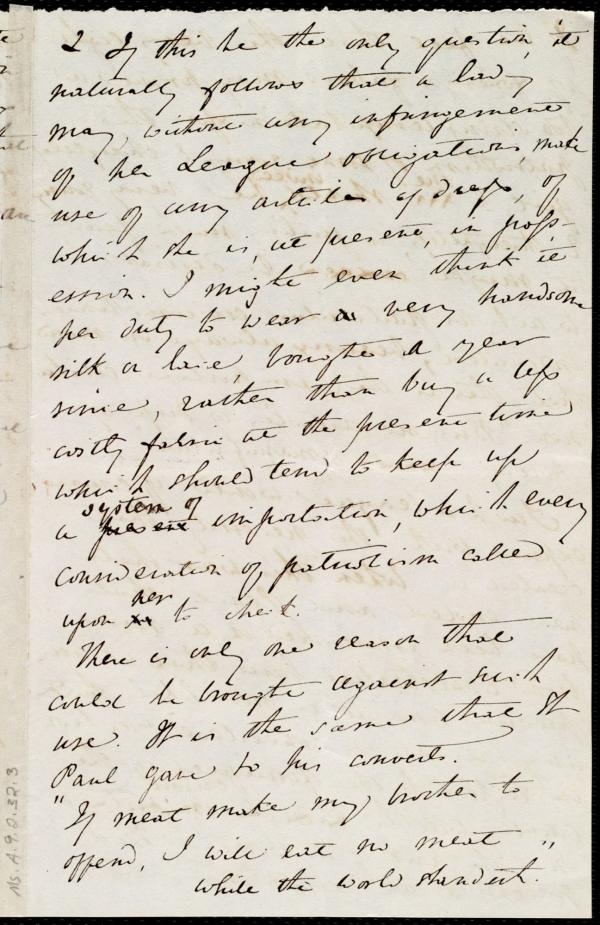 2 If this be the only question, it
naturally follows that a lady
may, without any infringement
of her League obligations, make
use of any article of dress, of
which she is, at present, in poss-
ession. I might even think it
her duty to wear a very handsome
silk or lace, bought a year
since, rather than buy a less
costly fabric at the present time
which should tend to keep up
system of
a present importation, which every
consideration of patriotism called
her
upon to check.
There is only one reason that
could be brought against such
use. It is the same that St
Paul gave to his converts.
"If meat make my brother to
offend, I will eat no meat
while the world standeth."
Ms. A.9.2.32.3